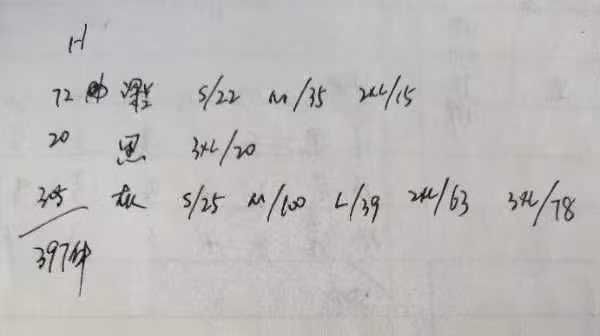 H
72 深 S/22 M/35 2XL/15
20 黑 3XL/20
305 S/25 M/100 L/39 2XL/63 3XL/78
397件